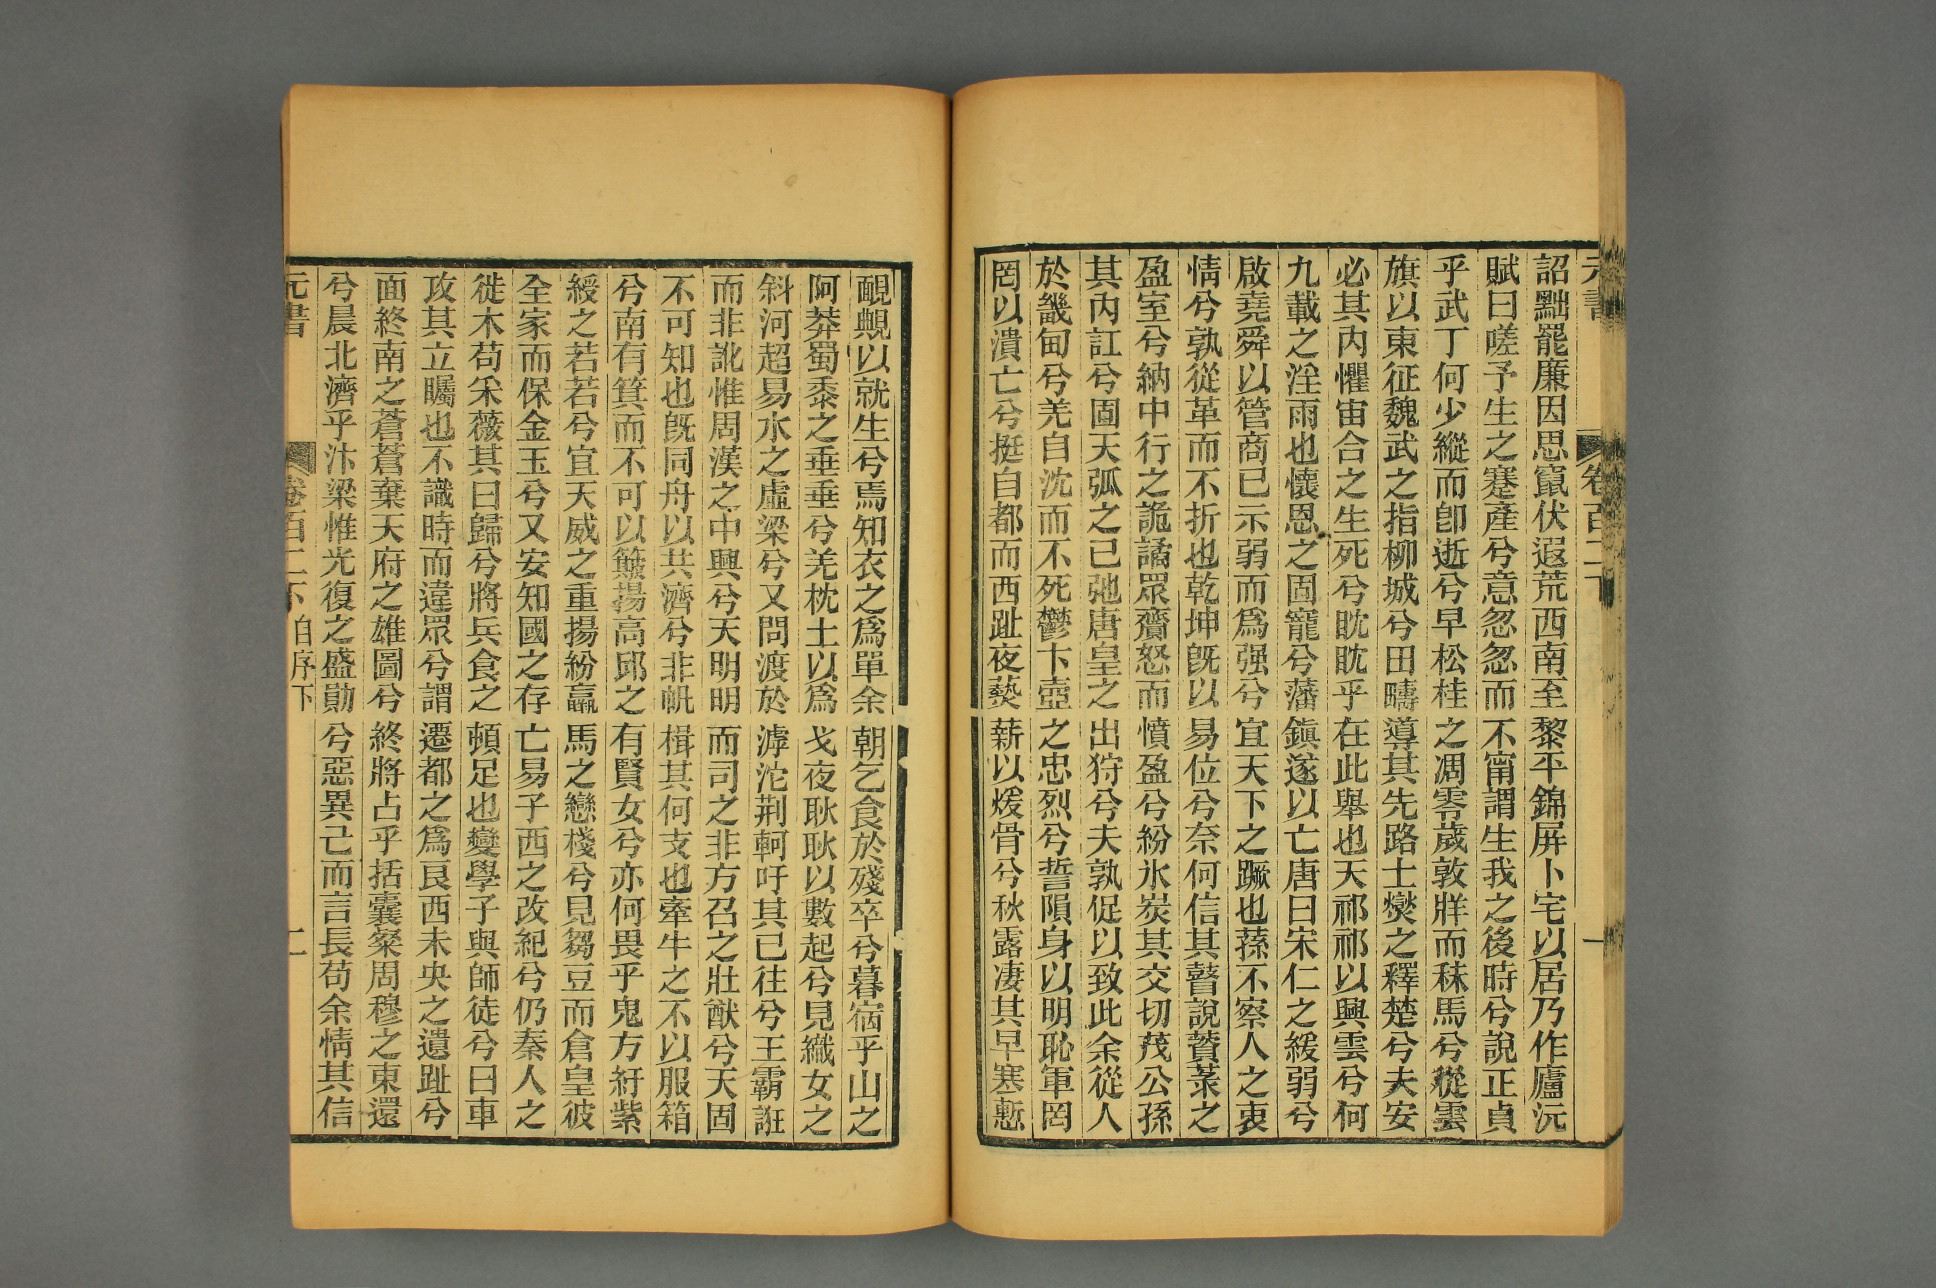 元書
卷百二下
一
詔黜罷廉因思竄伏遐荒西南至黎平錦屏卜宅以居乃作廬沅
賦曰嗟予生之蹇產兮意忽忽而不甯謂生我之後時兮說正貞
乎武丁何少縱而卽逝兮早松桂之凋零歲敦牂而秣馬兮從雲
旗以東征魏武之指柳城兮田疇導其先路士燮之釋楚兮夫安
必其內懼宙合之生死兮眈眈乎在此舉也天祁祁以興雲兮何
九載之淫雨也懷恩之固寵兮藩鎮遂以亡唐曰宋仁之緩弱兮
啟堯舜以管商已示弱而爲强兮宜天下之蹶也蓀不察人之衷
情兮孰從革而不折也乾坤旣以易位兮奈何信其瞽說薋菉之
盈室兮納中行之詭譎眾齎怒而憤盈兮紛氷炭其交切茂公孫
其內訌兮圖天弧之已弛唐皇之出狩兮夫孰促以致此余從人
於畿甸兮羌自沈而不死鬱卞壺之忠烈兮誓隕身以明恥軍罔
罔以潰亡兮挺自都而西趾夜爇薪以煖骨兮秋露淒其早寒慙
靦覥以就生兮焉知衣之爲單余朝乞食於殘卒兮暮宿乎山之
阿莽蜀黍之垂垂兮羌枕土以爲戈夜耿耿以數起兮見織女之
斜河超易水之虛梁兮又問渡於滹沱荆軻吁其已往兮王霸誑
而非訛惟周漢之中興兮天明明而司之非方召之壯猷兮天固
不可知也旣同舟以共濟兮非帆楫其何支也牽牛之不以服箱
兮南有箕而不可以簸揚高邱之有賢女兮亦何畏乎鬼方紆紫
綬之若若兮宜天威之重揚紛羸馬之戀棧兮見芻豆而倉皇彼
全家而保金玉兮又安知國之存亡易子西之改紀兮仍秦人之
徙木苟采薇其曰歸兮將兵食之頓足也變學子與師徒兮曰車
攻其立矚也不識時而違眾兮謂遷都之爲良西未央之遺趾兮
面終南之蒼蒼棄天府之雄圖兮終將占乎括囊粲周穆之東還
兮晨北濟乎汴梁惟光復之盛勛兮惡異己而言長苟余情其信
元書
卷百二下 自序下
二